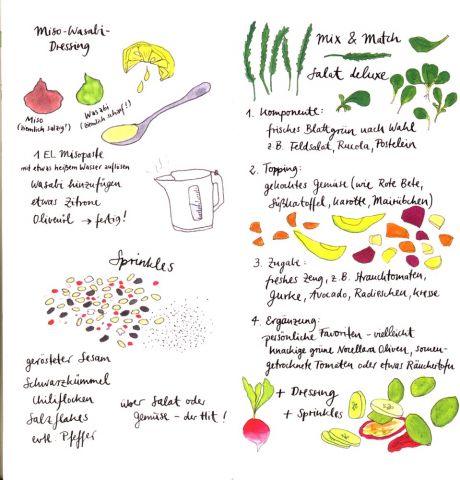 Miso-Wasabi-
Dressing
Miso
(ziemlich salzig!)
Wasabi
(ziemlich scharf!)
1 EL Misopaste
mit etwas heißem Wasser auflösen
Wasabi hinzufügen
etwas Zitrone
Olivenöl → fertig!
Sprinkles
gerösteter Sesam
Schwarzkümmel
Chiliflocken
Salzflakes
evtl. Pfeffer
über Salat oder
Gemüse – der Hit!
Mix & Match
Salat deluxe
1. Komponente:
frisches Blattgrün nach Wahl
z.B. Feldsalat, Rucola, Postelein
2. Topping:
gekochtes Gemüse (wie Rote Bete,
Süßkartoffel, Karotte, Mairübchen)
3. Zugabe:
frisches Zeug, z.B. Strauchtomaten,
Gurke, Avocado, Radieschen, Kresse
4. Ergänzung:
persönliche Favoriten – vielleicht
knackige grüne Nocellara Oliven, sonnen-
getrocknete Tomaten oder etwas Räuchertofu
+ Dressing
+ Sprinkles